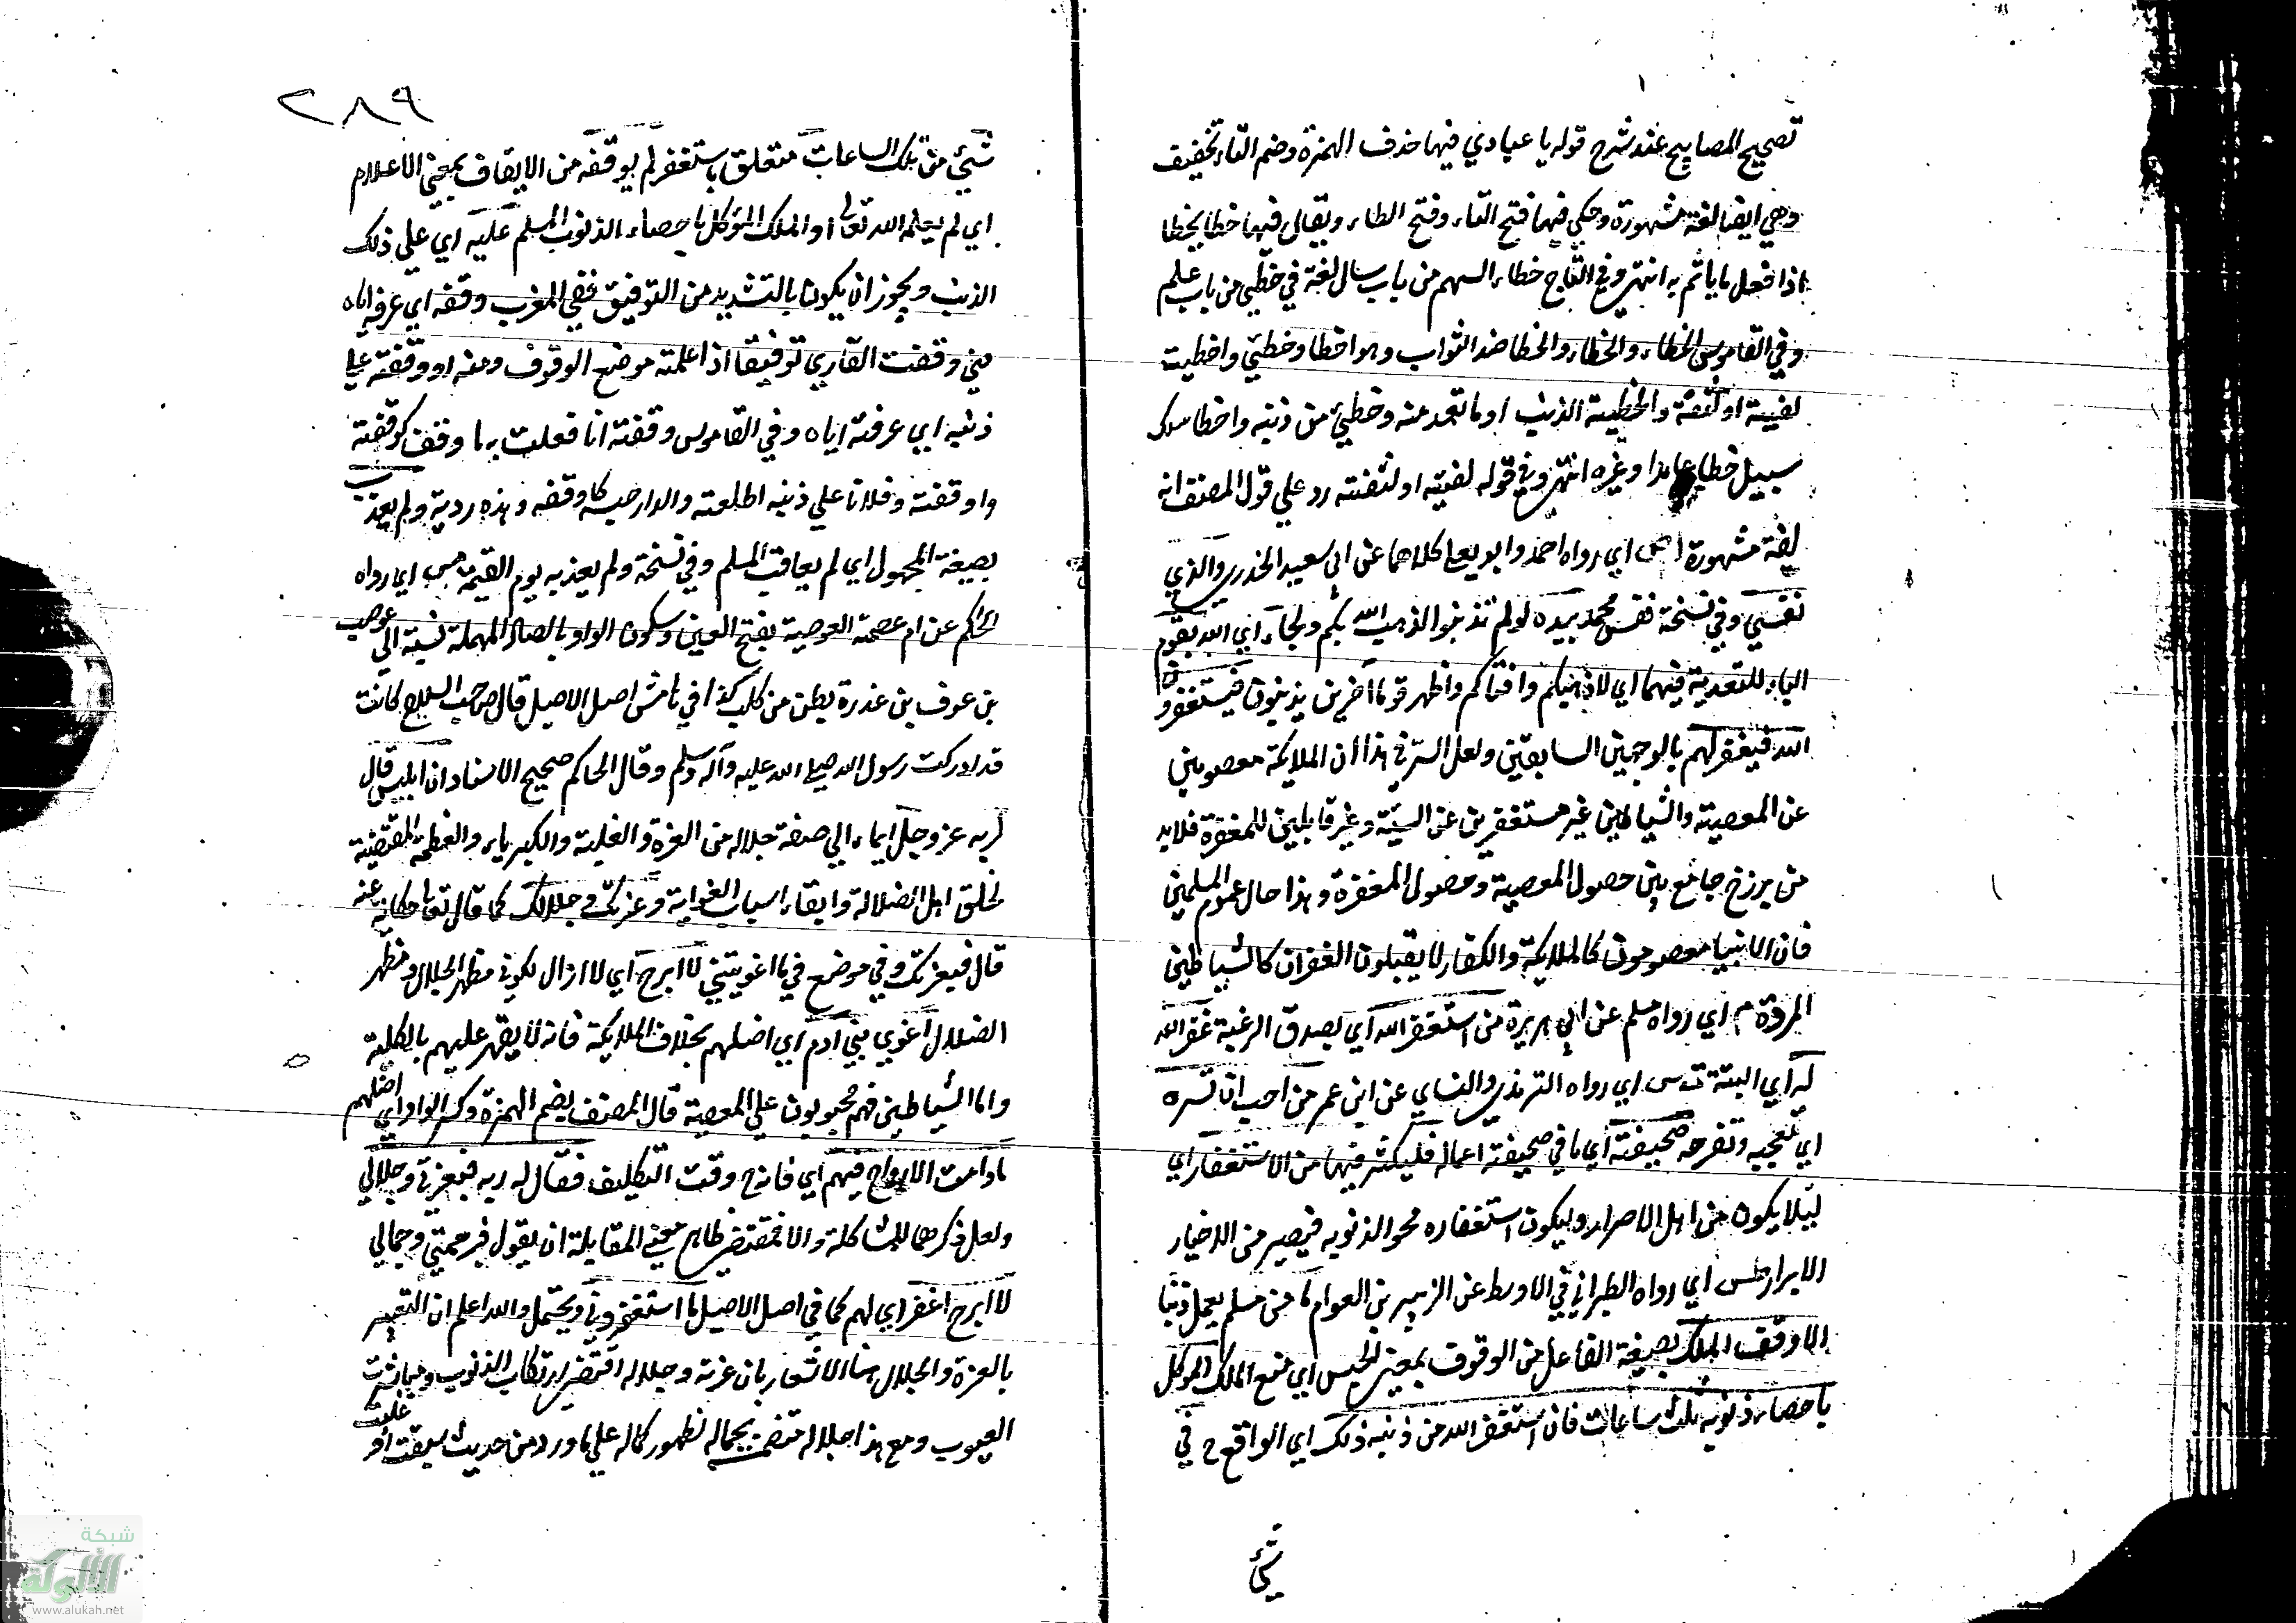 تصحيح المصابيح عند شرح قوله يا عبادي فيها حذف الهمزة وضم التاء تخفيف
وهي ايضا لغة مشهورة وحكي فيها فتح التاء وفتح الطاء ويقال فيها خطا يخطا
اذا فعل ما ياثم به انتهى وفي التاج خطاء السهم من باب سال لغة في خطئ من باب علم
وفي القاموس الخطاء والخطاء والخطا ضد الثواب وهو اخطا وخطئ واخطيت
لغيية او لثغة والخطيئة الذنب او ما تعمد منه وخطئ من ذنبه واخطا سلك
سبيل خطا عامدا وغيره انتهى وفي قوله لغيته او لثغته رد علي قول المصنف انه
لغة مشهورة اص اي رواه احمد وابو يعلى كلاهما عن ابي سعيد الخدري والذي
نفسي وفي نسخة نفس محمد بيده لو لم تذنبوا لذهب الله بكم ولجاء اي الله بقوم
الباء للتعدية فيهما اي لاذهبكم وافناكم واظهر قوما آخرين يذنبون فيستغفرون
الله فيغفر لهم بالوجهين السابقين ولعل السر في هذا ان الملايكة معصومين
عن المعصية والشياطين غير مستغفرين عن السيئة وغير قابلين للمغفرة فلابد
من برزخ جامع بين حصول المعصية وحصول المغفرة وهذا حال عموم المسلمين
فان الانبيا معصومون كالملايكة والكفار لا يقبلون الغفران كالشياطين
المردة م اي رواه مسلم عن ابي هريرة من استغفر الله اي بصدق الرغبة غفر الله
له اي البتة ت س اي رواه الترمذي والنساي عن ابن عمر من احب ان تسره
اي تعجبه وتفرحه صحيفته اي ما في صحيفة اعماله فليكثر فيها من الاستغفار اي
ليلا يكون من اهل الاصرار وليكون استغفاره محوا لذنوبه فيصير من الاخيار
الابرار طس اي رواه الطبراني في الاوسط عن الزبير بن العوام ما من مسلم يعمل ذنبا
الا وقف الملك بصيغة الفاعل من الوقوف بمعنى الحبس اي منع الملك الموكل
باحصاء ذنوبه ثلث ساعات فان استغفر الله من ذنبه ذلك اي الواقع ح في
شئ
٢٨٩
شئ من تلك الساعات متعلق باستغفر لم يوقفه من الايقاف بمعنى الاعلام
اي لم يعلمه الله تعالى او الملك الموكل باحصاء الذنوب المسلم عليه اي علي ذلك
الذنب ويجوز ان يكون بالتشديد من التوفيق ففي المغرب وقفه اي عرفه اياه
من وقفت القاري توقيفا اذا اعلمته موضع الوقوف ومنه او وقفته على
ذنبه اي عرفته اياه وفي القاموس وقفته انا فعلت به ما وقف كوقفته
واوقفته وفلانا علي ذنبه اطلعته والدار حبسه كاوقفه وهذه ردية ولم يعذب
بصيغة المجهول اي لم يعاقب المسلم وفي نسخة ولم يعذبه يوم القيمة مس اي رواه
الحاكم عن ام عصمة العوصية بفتح العين وسكون الواو بالصاد المهملة نسبة الى عوص
بن عوف بن عذرة بطن من كلب كذا في هامش اصل الاصيل قال صاحب السلاح كانت
قد ادركت رسول الله صلى الله عليه وآله وسلم وقال الحاكم صحيح الاسناد ان ابليس قال
لربه عز وجل ايماء الي صفة جلاله من العزة والغلبة والكبرياء والعظمة المقتضية
لخلق اهل الضلالة وابقاء اسباب الغواية وعزتك وجلالك كما قال تعالى حكاية عنه
قال فبعزتك وفي موضع فبما اغويتني لا ابرح اي لا ازال لكوني مظهر الجلال ومظهر
الضلال اغوي بني ادم اي اضلهم بخلاف الملايكة فانه لا يقهر عليهم بالكلية
واما الشياطين فهم مجبولون علي المعصية قال المصنف بضم الهمزة وكسر الواو اي اضلهم
ما دامت الارواح فيهم اي فانه ح وقت التكليف فقال له ربه فبعزتي وجلالي
ولعل ذكرهما للمشاكلة والا فمقتضى ظاهر معنى المقابلة ان يقول فبرحمتي وجمالي
لا ابرح اغفر اي لهم كما في اصل الاصيل ما استغفروني ويحتمل والله اعلم ان التعبير
بالعزة والجلال هنا الاشعار بان عزته وجلاله اقتضى ارتكاب الذنوب ومباشرت
العيوب ومع هذا جلاله متضمن بجماله لظهور كماله على ما ورد من حديث سبقت او غلبت
شبكة
الألوكة
www.alukah.net